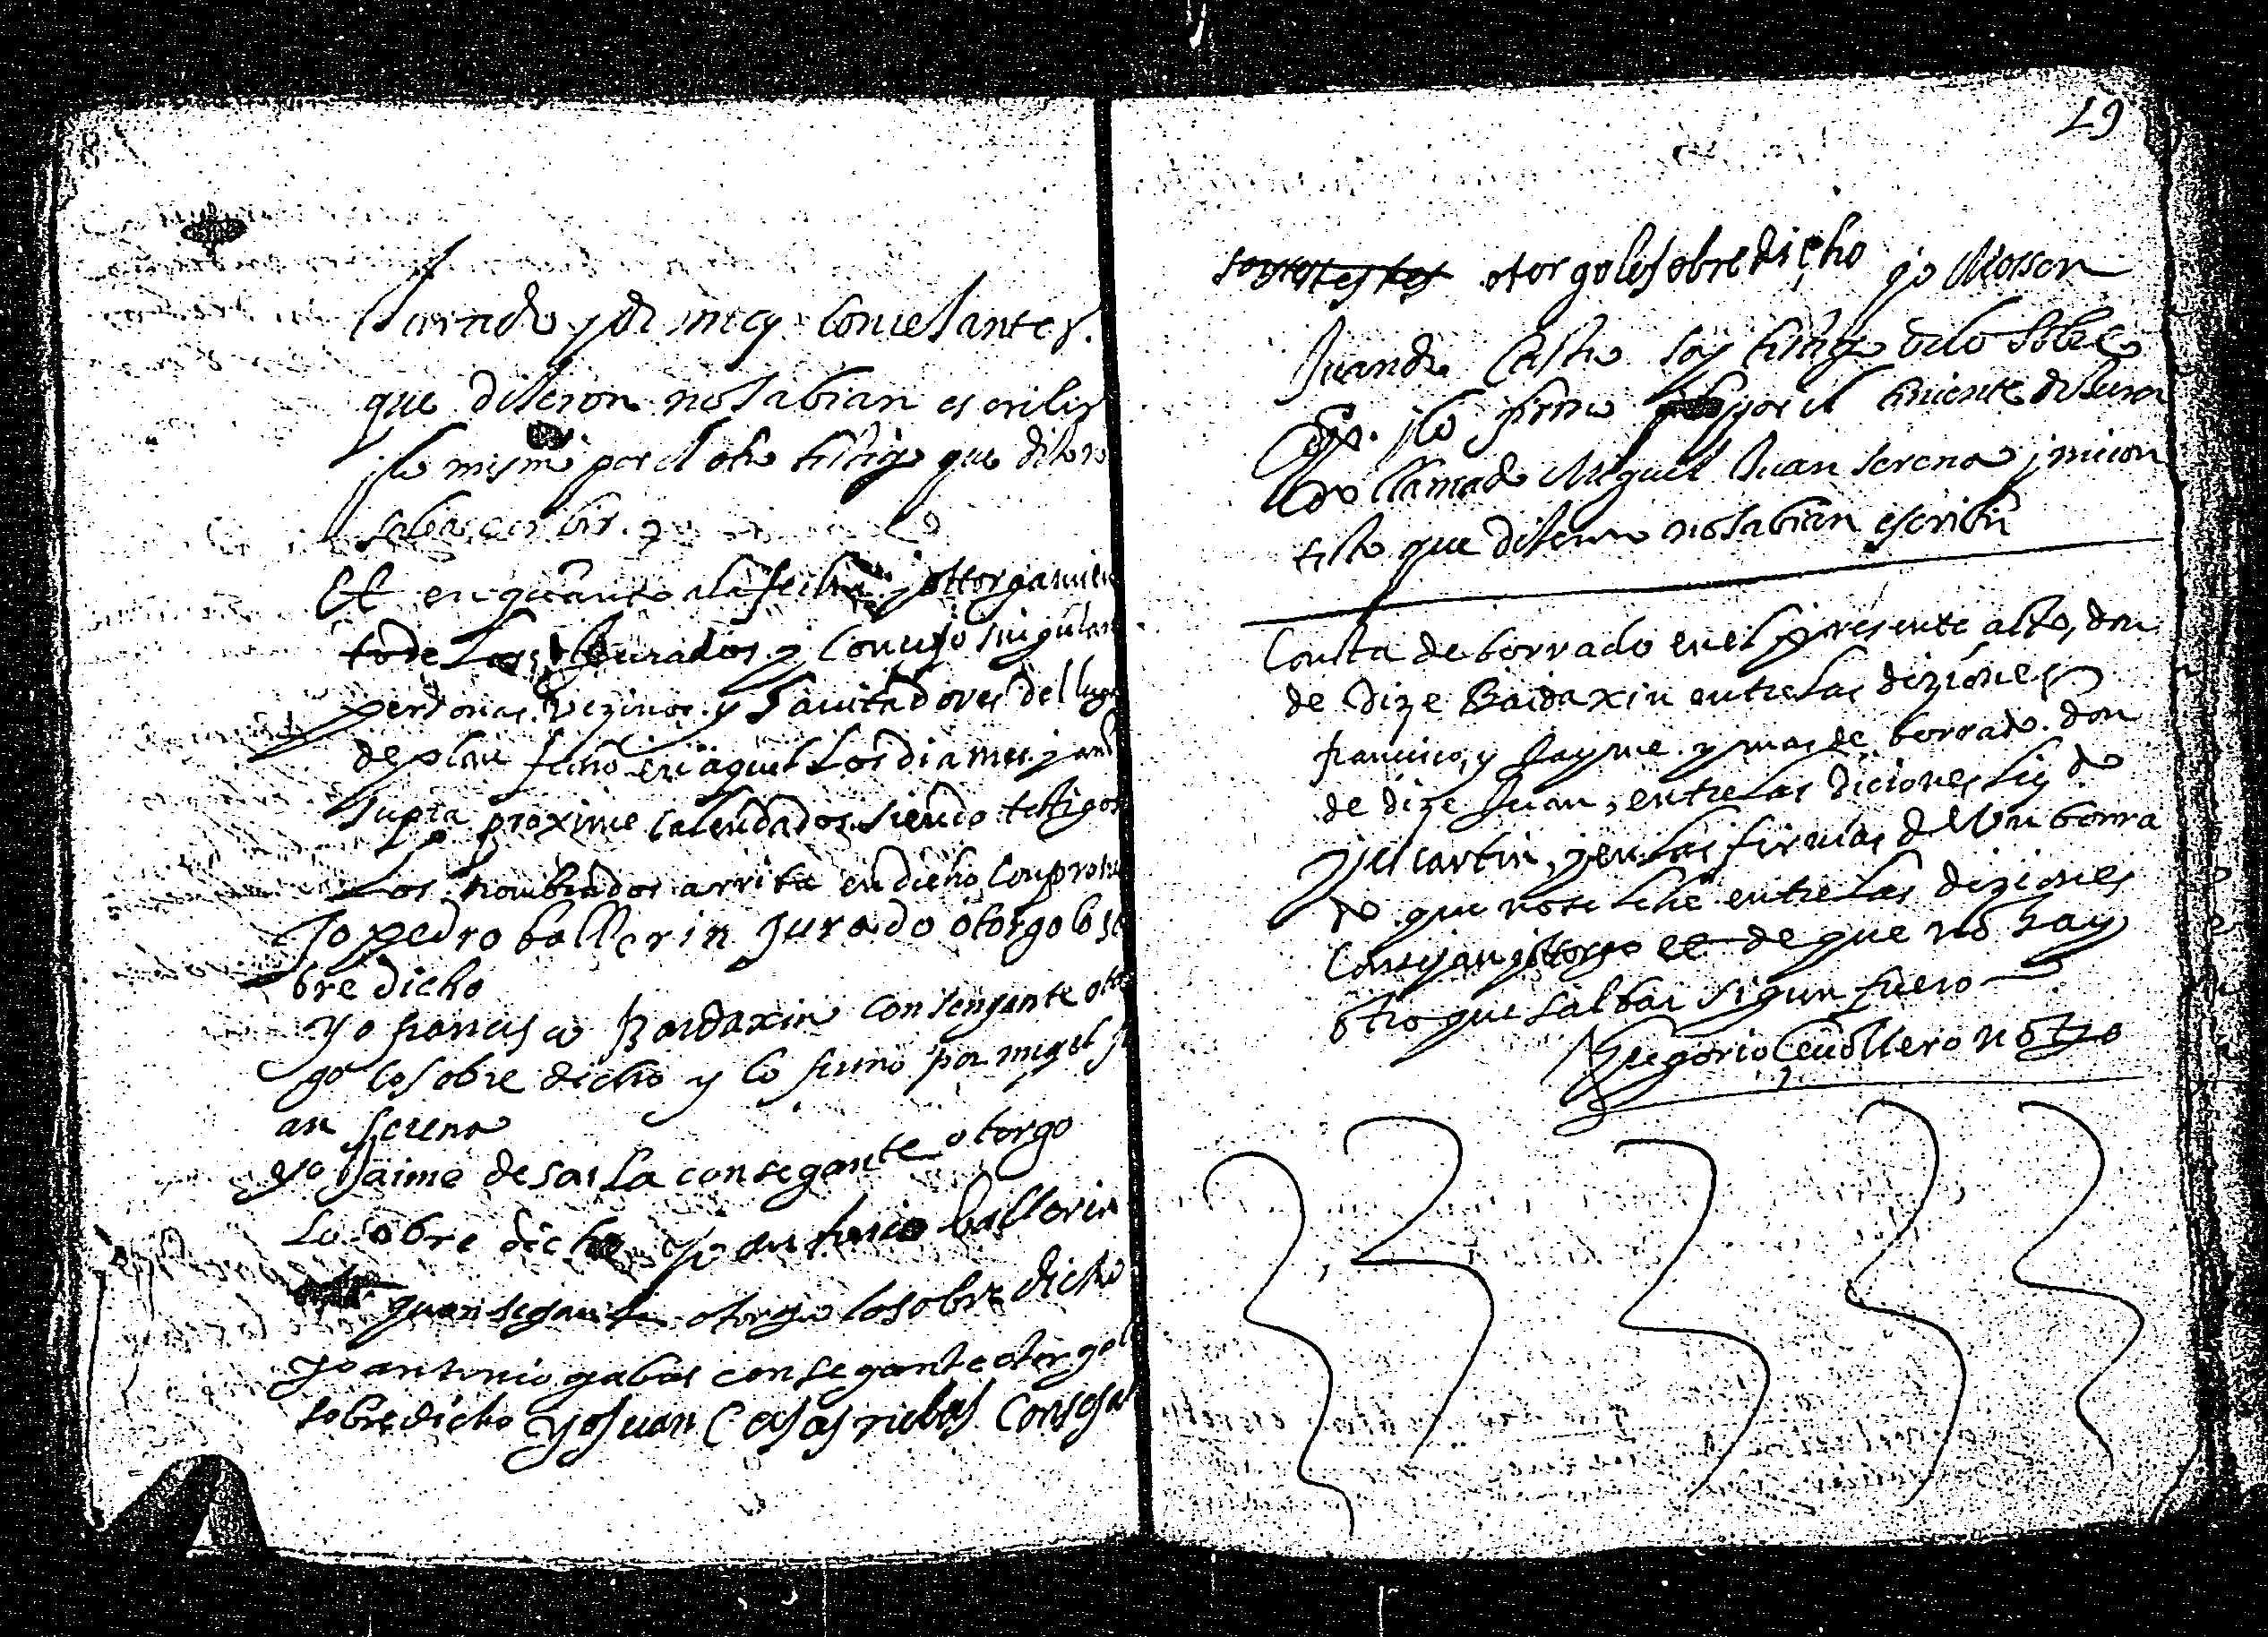 Jurado y de meis conçelantes.
que dixeron no sabian escribir
y lo mismo por el otro testigo que dixo no
sabia escribir.
Et en quanto a la fecha y ottorgamien
to de los Jurados y conçejo singulares
personas vezinos y havitadores del lugar
de plan fecho en aquellos dia mes y año
supra proxime calendados siendo testigos
Los nombrados arriba en dicho compromis
Yo pedro ballerin Jurado otorgo lo so
bre dicho
Yo francisco Bardaxin consengante otor
go lo sobre dicho y lo firmo por migel ju
an serena
yo Jaime de sarla consegante otorgo
Lo sobre dicho Yo antonio ballerin
quonsegante otorgo lo sobre dicho
yo antonio gabas consegante otorgo lo
sobre dicho Yo Juan Casasnuebas Consegan
19
otorgo lo sobre dicho yo Mossen
Juan de Castro soy testigo de lo sobre
dicho. y lo firmo por el teniente de Jura
do llamado Miguel Juan serena y mi con
testo que dixeron no sabian escribir
Consta de borrado en el presente acto, don
de dize Baidaxin entre las diziones
francisco, y Jayme y mas de borrado don
de dize Juan, entre las diciones
y Martin, y en las firmas de un borra
do que no se lehe entre las diziones
consejan y ottorgo et de que no hay
otro que salbar sigun fuero
Gregorio Cuollero notro